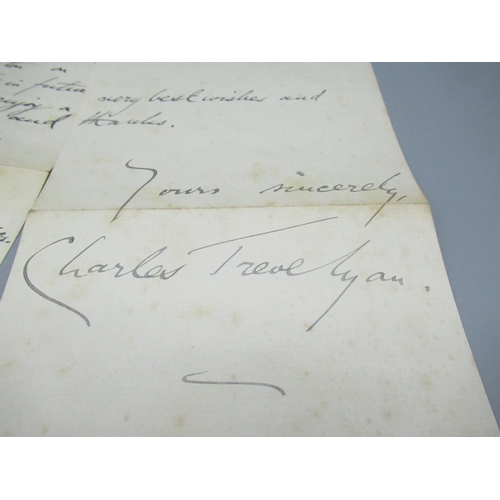 on
in future
enjoy a
and
very best wishes and
thanks.
Yours sincerely,
Charles Trevelyan.